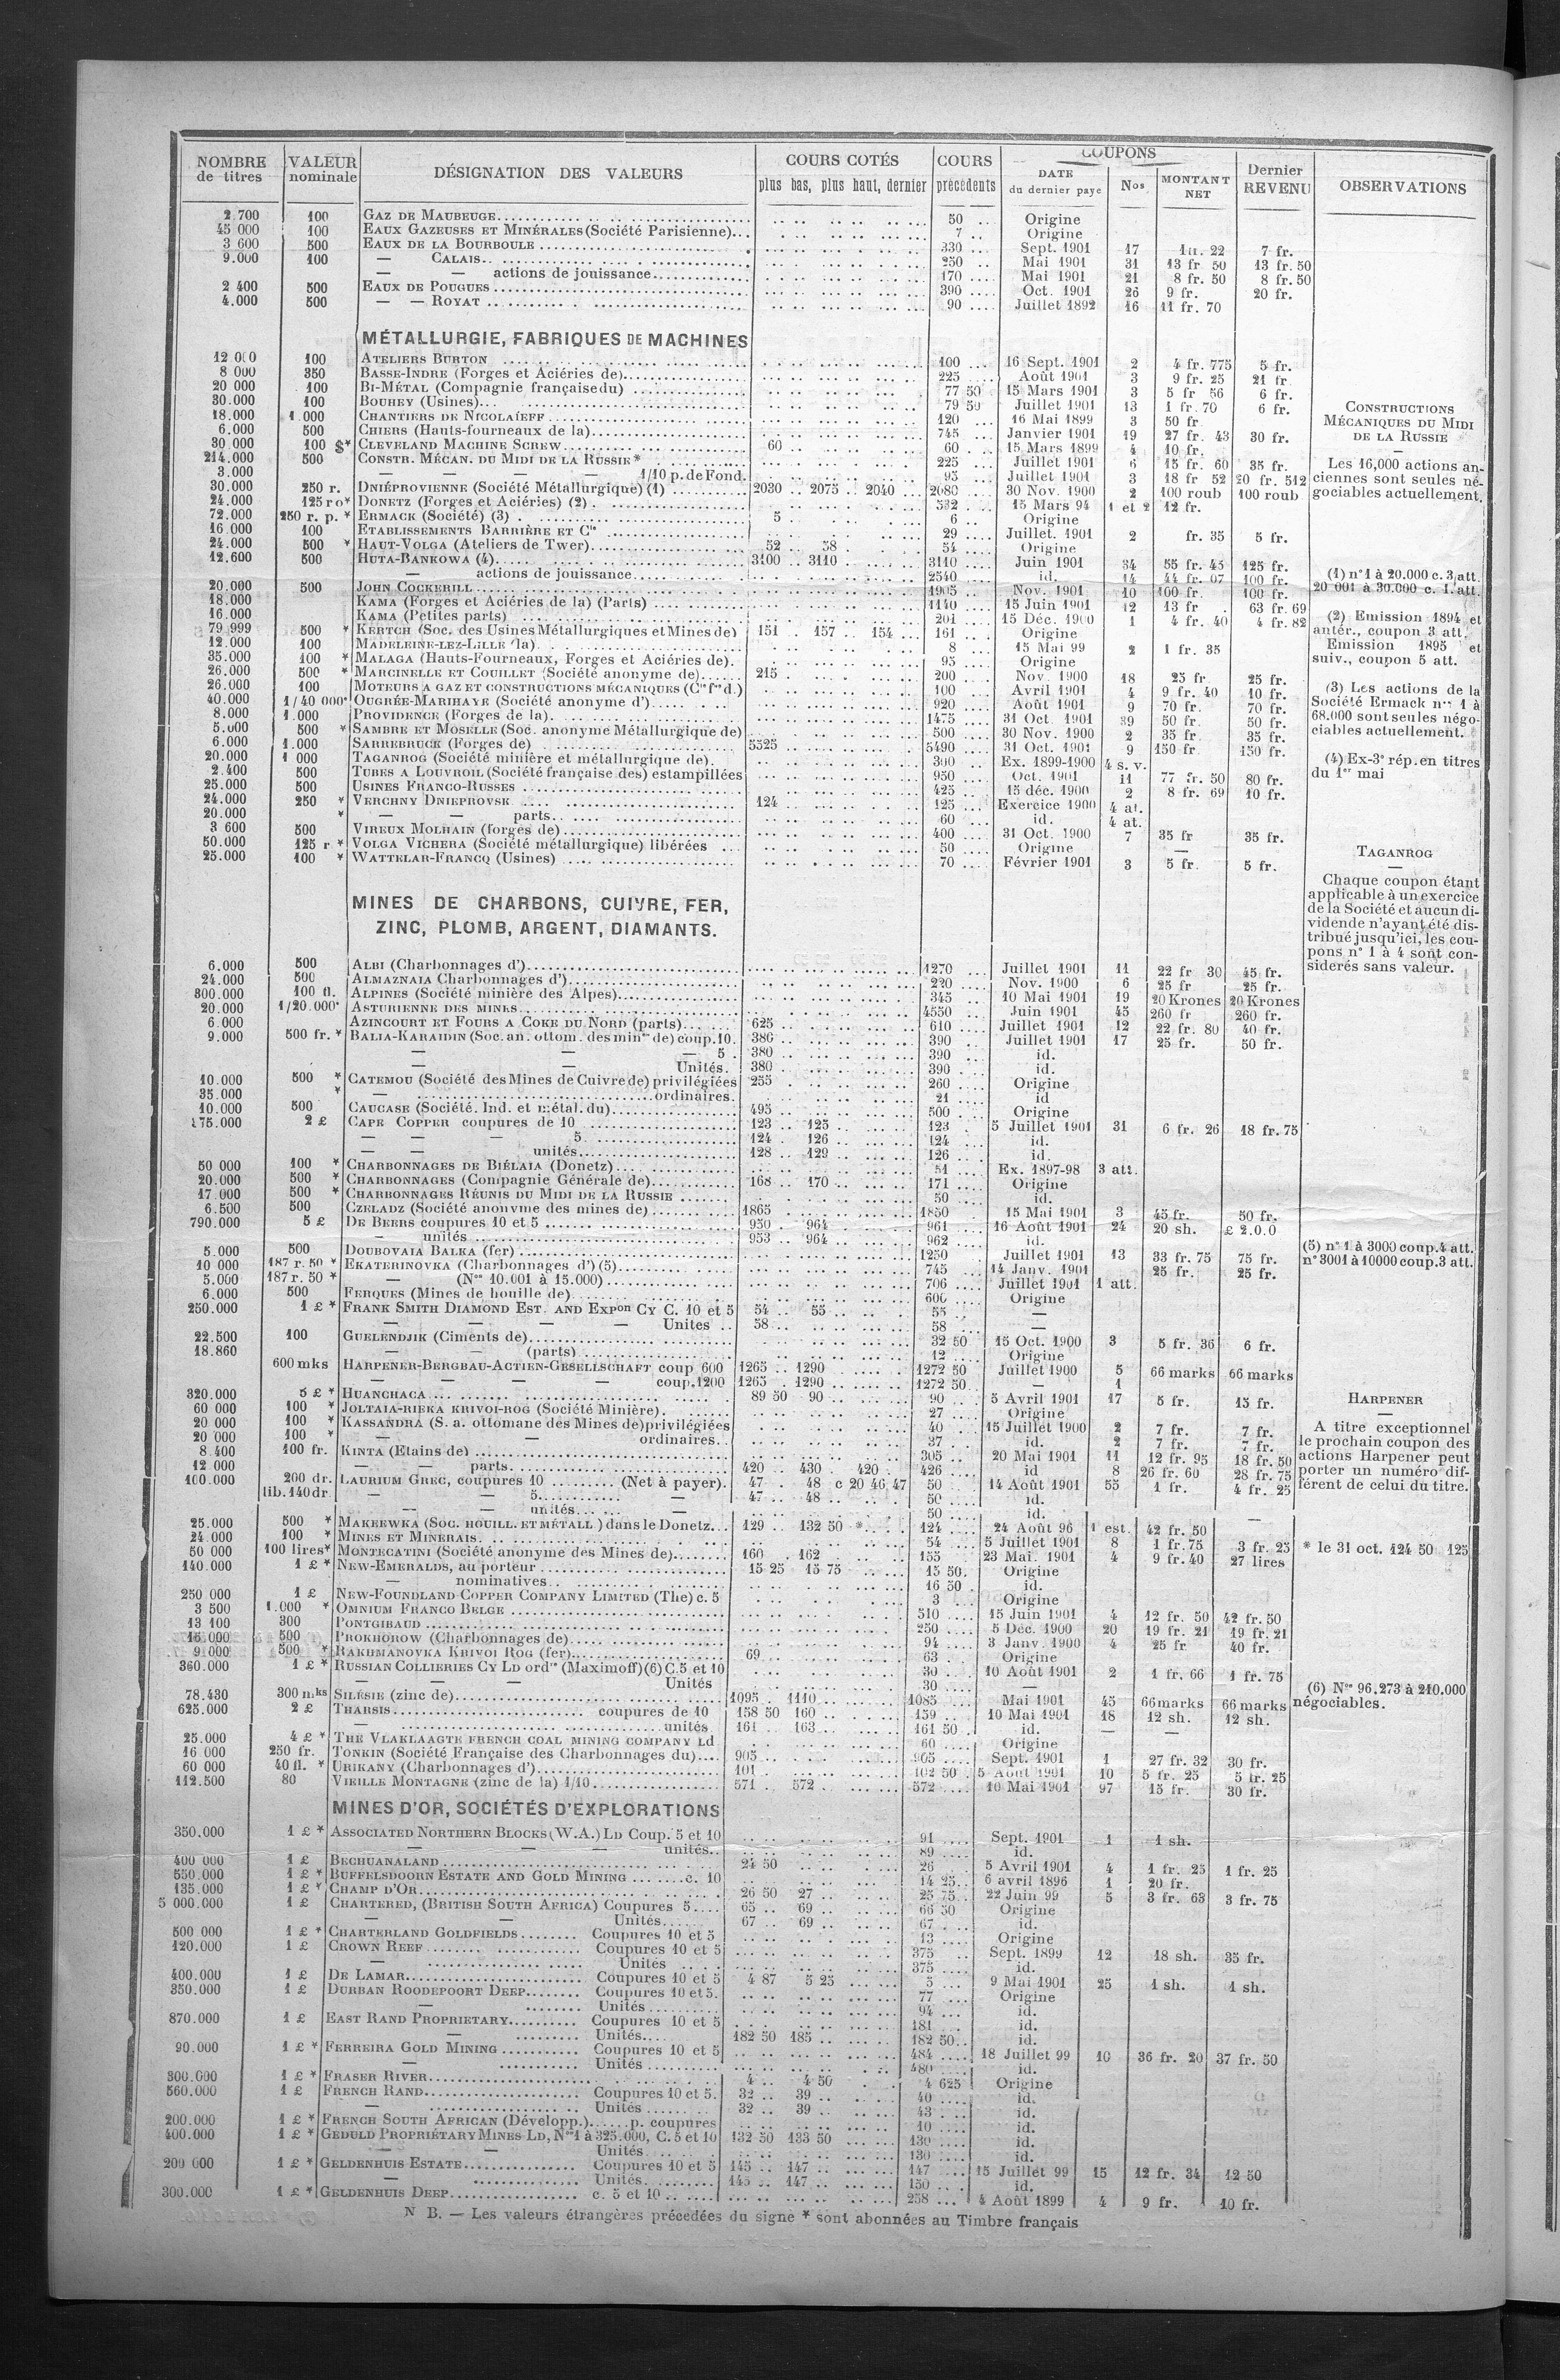 NOMBRE de titres | VALEUR nominale | DÉSIGNATION DES VALEURS | COURS COTÉS plus bas, plus haut, dernier | COURS précédents | COUPONS DATE du dernier payé | Nos | MONTANT NET | Dernier REVENU | OBSERVATIONS
2.700 100 GAZ DE MAUBEUGE 50 Origine
45 000 100 EAUX GAZEUSES ET MINÉRALES (Société Parisienne) 7 Origine
3 600 500 EAUX DE LA BOURBOULE 330 Sept. 1901 17 22 7 fr.
9.000 100 — CALAIS 250 Mai 1901 31 13 fr 50 13 fr. 50
— — actions de jouissance 170 Mai 1901 21 8 fr. 50 8 fr. 50
2 400 500 EAUX DE POUGUES 390 Oct. 1901 26 9 fr. 20 fr.
4.000 500 — — ROYAT 90 Juillet 1892 16 11 fr. 70
MÉTALLURGIE, FABRIQUES DE MACHINES
12 000 100 ATELIERS BURTON 100 16 Sept. 1901 2 4 fr. 775 5 fr.
8 000 350 BASSE-INDRE (Forges et Aciéries de) 225 Août 1901 3 9 fr. 25 21 fr
20 000 100 BI-MÉTAL (Compagnie française du) 77 50 15 Mars 1901 3 5 fr 56 6 fr.
30.000 100 BOUHEY (Usines) 79 50 Juillet 1901 13 1 fr. 70 6 fr.
18.000 1.000 CHANTIERS DE NICOLAÏEFF 120 16 Mai 1899 3 50 fr
6.000 500 CHIERS (Hauts-fourneaux de la) 745 Janvier 1901 19 27 fr. 43 30 fr.
30 000 100 $* CLEVELAND MACHINE SCREW 60 60 15 Mars 1899 4 10 fr.
214.000 500 CONSTR. MÉCAN. DU MIDI DE LA RUSSIE * 225 Juillet 1901 6 15 fr. 60 35 fr.
3.000 — — — — 1/10 p. de Fond. 95 Juillet 1901 3 18 fr 52 20 fr. 512
30.000 250 r. DNIÉPROVIENNE (Société Métallurgique) (1) 2030 2075 2040 2080 30 Nov. 1900 2 100 roub 100 roub
24.000 125 r o* DONETZ (Forges et Aciéries) (2) 532 15 Mars 94 1 et 2 12 fr.
72.000 250 r. p. * ERMACK (Société) (3) 5 6 Origine
16 000 100 ETABLISSEMENTS BARRIÈRE ET Cie 29 Juillet. 1901 2 fr. 35 5 fr.
24.000 500 * HAUT-VOLGA (Ateliers de Twer) 52 58 54 Origine
12.600 500 HUTA-BANKOWA (4) 3100 3110 3110 Juin 1901 34 55 fr. 45 125 fr.
— actions de jouissance 2540 id. 14 44 fr. 07 100 fr.
20.000 500 JOHN COCKERILL 1905 Nov. 1901 10 100 fr. 100 fr.
18.000 KAMA (Forges et Aciéries de la) (Parts) 1140 15 Juin 1901 12 13 fr 63 fr. 69
16.000 KAMA (Petites parts) 201 15 Déc. 1900 1 4 fr. 40 4 fr. 82
79 999 500 * KERTCH (Soc. des Usines Métallurgiques et Mines de) 151 157 154 161 Origine
12.000 100 MADELEINE-LEZ-LILLE (la) 8 15 Mai 99 2 1 fr. 35
35.000 100 * MALAGA (Hauts-Fourneaux, Forges et Aciéries de) 95 Origine
26.000 500 * MARCINELLE ET COUILLET (Société anonyme de) 215 200 Nov. 1900 18 25 fr 25 fr.
26.000 100 MOTEURS A GAZ ET CONSTRUCTIONS MÉCANIQUES (Cie fse d.) 100 Avril 1901 4 9 fr. 40 10 fr.
40.000 1/40 000* OUGRÉE-MARIHAYE (Société anonyme d') 920 Août 1901 9 70 fr. 70 fr.
8.000 1.000 PROVIDENCE (Forges de la) 1475 31 Oct. 1901 39 50 fr. 50 fr.
5.000 500 * SAMBRE ET MOSELLE (Soc. anonyme Métallurgique de) 500 30 Nov. 1900 2 35 fr 35 fr.
6.000 1.000 SARREBRUCK (Forges de) 5525 5490 31 Oct. 1901 9 150 fr 150 fr.
20.000 1 000 TAGANROG (Société minière et métallurgique de) 300 Ex. 1899-1900 4 s. v.
2.400 500 TUBES A LOUVROIL (Société française des) estampillées 950 Oct. 1901 11 77 fr. 50 80 fr.
25.000 500 USINES FRANCO-RUSSES 425 15 déc. 1900 2 8 fr. 69 10 fr.
24.000 250 * VERCHNY DNIEPROVSK 124 125 Exercice 1900 4 at.
20.000 * — — parts 60 id. 4 at.
3 600 500 VIREUX MOLHAIN (forges de) 400 31 Oct. 1900 7 35 fr 35 fr.
50.000 125 r * VOLGA VICHERA (Société métallurgique) libérées 50 Origine —
25.000 100 * WATTELAR-FRANCQ (Usines) 70 Février 1901 3 5 fr. 5 fr.
CONSTRUCTIONS
MÉCANIQUES DU MIDI
DE LA RUSSIE
—
Les 16,000 actions an-
ciennes sont seules né-
gociables actuellement.
(1) n° 1 à 20.000 c. 3 att.
20 001 à 30.000 c. 1. att.
(2) Emission 1894 et
antér., coupon 3 att.
Emission 1895 et
suiv., coupon 5 att.
(3) Les actions de la
Société Ermack nos 1 à
68.000 sont seules négo-
ciables actuellement.
(4) Ex-3e rép. en titres
du 1er mai
TAGANROG
—
Chaque coupon étant
applicable à un exercice
de la Société et aucun di-
vidende n'ayant été dis-
tribué jusqu'ici, les cou-
pons n° 1 à 4 sont con-
sidérés sans valeur.
MINES DE CHARBONS, CUIVRE, FER,
ZINC, PLOMB, ARGENT, DIAMANTS.
6.000 500 ALBI (Charbonnages d') 1270 Juillet 1901 11 22 fr 30 45 fr.
24.000 500 ALMAZNAIA Charbonnages d') 220 Nov. 1900 6 25 fr 25 fr.
300.000 100 fl. ALPINES (Société minière des Alpes) 345 10 Mai 1901 19 20 Krones 20 Krones
20.000 1/20.000* ASTURIENNE DES MINES 4550 Juin 1901 45 260 fr 260 fr.
6.000 AZINCOURT ET FOURS A COKE DU NORD (parts) 625 610 Juillet 1901 12 22 fr. 80 40 fr.
9.000 500 fr. * BALIA-KARAIDIN (Soc. an. ottom. des mines de) coup. 10. 386 390 Juillet 1901 17 25 fr. 50 fr.
— — — 5 380 390 id.
— — Unités. 380 390 id.
10.000 500 * CATEMOU (Société des Mines de Cuivre de) privilégiées 255 260 Origine
35.000 * — ordinaires. 21 id
10.000 500 CAUCASE (Société. Ind. et métal. du) 495 500 Origine
175.000 2 £ CAPE COPPER coupures de 10 123 125 123 5 Juillet 1901 31 6 fr. 26 18 fr. 75
— — — 5 124 126 124 id.
— — unités 128 129 126 id.
50 000 100 * CHARBONNAGES DE BIÉLAIA (Donetz) 51 Ex. 1897-98 3 att.
20.000 500 * CHARBONNAGES (Compagnie Générale de) 168 170 171 Origine
17.000 500 * CHARBONNAGES RÉUNIS DU MIDI DE LA RUSSIE 50 id.
6.500 500 CZELADZ (Société anonyme des mines de) 1865 1850 15 Mai 1901 3 45 fr. 50 fr.
790.000 5 £ DE BEERS coupures 10 et 5 950 964 961 16 Août 1901 24 20 sh. £ 2.0.0
— unités 953 964 962 id.
5.000 500 DOUBOVAIA BALKA (fer) 1250 Juillet 1901 13 33 fr. 75 75 fr.
10 000 187 r. 50 * EKATERINOVKA (Charbonnages d') (5) 745 14 Janv. 1901 25 fr. 25 fr.
5.000 187 r. 50 * — (Nos 10.001 à 15.000) 706 Juillet 1901 1 att.
6.000 500 FERQUES (Mines de houille de) 600 Origine
250.000 1 £ * FRANK SMITH DIAMOND EST. AND EXPon CY C. 10 et 5 54 55 55 —
— — — — Unites 58 58 —
22.500 100 GUELENDJIK (Ciments de) 32 50 15 Oct. 1900 3 5 fr. 36 6 fr.
18.860 — — (parts) 12 Origine
600 mks HARPENER-BERGBAU-ACTIEN-GESELLSCHAFT coup 600 1265 1290 1272 50 Juillet 1900 5 66 marks 66 marks
— — — — coup. 1200 1265 1290 1272 50 — 1
320.000 5 £ * HUANCHACA 89 50 90 90 5 Avril 1901 17 5 fr. 15 fr.
60 000 100 * JOLTAIA-RIEKA KRIVOI-ROG (Société Minière) 27 Origine
20 000 100 * KASSANDRA (S. a. ottomane des Mines de) privilégiées 40 15 Juillet 1900 2 7 fr. 7 fr.
20 000 100 * — — ordinaires 37 id. 2 7 fr. 7 fr.
8.400 100 fr. KINTA (Etains de) 305 20 Mai 1901 11 12 fr. 95 18 fr. 50
12 000 — — parts 420 430 420 426 id 8 26 fr. 60 28 fr. 75
100.000 200 dr. LAURIUM GREC, coupures 10 (Net à payer). 47 48 c 20 46 47 50 14 Août 1901 55 1 fr. 4 fr. 25
lib. 140 dr. — — 5 — 47 48 50 id.
— — unités — 50 id.
25.000 500 * MAKEEWKA (SOC. HOUILL. ET MÉTALL) dans le Donetz 129 132 50 * 124 24 Août 96 1 est. 42 fr. 50 —
24.000 100 * MINES ET MINERAIS 54 5 Juillet 1901 8 1 fr. 75 3 fr. 25
50 000 100 lires* MONTECATINI (Société anonyme des Mines de) 160 162 155 23 Mai. 1901 4 9 fr. 40 27 lires
140.000 1 £ * NEW-EMERALDS, au porteur 15 25 15 75 15 50 Origine
— nominatives 16 50 id.
250 000 1 £ NEW-FOUNDLAND COPPER COMPANY LIMITED (The) c. 5 3 Origine
3 500 1.000 * OMNIUM FRANCO BELGE 510 15 Juin 1901 4 12 fr. 50 42 fr. 50
13 100 300 PONTGIBAUD 250 5 Déc. 1900 20 19 fr. 21 19 fr. 21
15 000 500 PROKHOROW (Charbonnages de) 94 3 Janv. 1900 4 25 fr 40 fr.
9 000 500 * RAKHMANOVKA KRIVOI ROG (fer) 69 63 Origine
360.000 1 £ * RUSSIAN COLLIERIES CY LD ordres (Maximoff) (6) C. 5 et 10 30 10 Août 1901 2 1 fr. 66 1 fr. 75
— — — — Unités 30 —
78.430 300 mks SILÉSIE (zinc de) 1095 1110 1085 Mai 1901 45 66 marks 66 marks
625.000 2 £ THARSIS coupures de 10 158 50 160 159 10 Mai 1901 18 12 sh. 12 sh.
— unités 161 163 161 50 id. — —
25.000 4 £ * THE VLAKLAAGTE FRENCH COAL MINING COMPANY LD 60 Origine
16 000 250 fr. TONKIN (Société Française des Charbonnages du) 905 905 Sept. 1901 1 27 fr. 32 30 fr.
60 000 40 fl. * URIKANY (Charbonnages d') 101 102 50 5 Août 1901 10 5 fr. 25 5 fr. 25
112.500 80 VIEILLE MONTAGNE (zinc de la) 1/10 571 572 572 10 Mai 1901 97 15 fr. 30 fr.
(5) n° 1 à 3000 coup. 4 att.
n° 3001 à 10000 coup. 3 att.
HARPENER
—
A titre exceptionnel
le prochain coupon des
actions Harpener peut
porter un numéro dif-
férent de celui du titre.
* le 31 oct. 124 50 125
(6) Nos 96.273 à 210.000
négociables.
MINES D'OR, SOCIÉTÉS D'EXPLORATIONS
350.000 1 £ * ASSOCIATED NORTHERN BLOCKS (W.A.) LD Coup. 5 et 10 91 Sept. 1901 1 1 sh.
— — — unités 89 id.
400 000 1 £ BECHUANALAND 24 50 26 5 Avril 1901 4 1 fr. 25 1 fr. 25
550.000 1 £ * BUFFELSDOORN ESTATE AND GOLD MINING c. 10 14 25 6 avril 1896 1 20 fr.
135.000 1 £ * CHAMP D'OR 26 50 27 25 75 22 Juin 99 5 3 fr. 63 3 fr. 75
5 000.000 1 £ CHARTERED, (BRITISH SOUTH AFRICA) Coupures 5 65 69 66 50 Origine
— — Unités 67 69 67 id.
500 000 1 £ * CHARTERLAND GOLDFIELDS Coupures 10 et 5 13 Origine
120.000 1 £ CROWN REEF Coupures 10 et 5 375 Sept. 1899 12 18 sh. 35 fr.
— Unités 375 id.
400.000 1 £ DE LAMAR Coupures 10 et 5 4 87 5 25 5 9 Mai 1901 25 1 sh. 1 sh.
350.000 1 £ DURBAN ROODEPOORT DEEP Coupures 10 et 5. 77 Origine
— Unités 94 id.
870.000 1 £ EAST RAND PROPRIETARY Coupures 10 et 5 181 id.
— Unités 182 50 185 182 50 id.
90.000 1 £ * FERREIRA GOLD MINING Coupures 10 et 5 484 18 Juillet 99 10 36 fr. 20 37 fr. 50
— Unités 480 id.
300.000 1 £ * FRASER RIVER 4 4 50 4 625 Origine
560.000 1 £ FRENCH RAND Coupures 10 et 5. 32 39 40 id.
— Unités 32 39 43 id.
200.000 1 £ * FRENCH SOUTH AFRICAN (Développ.) p. coupures 10 id.
400.000 1 £ * GEDULD PROPRIÉTARY MINES LD, Nos 1 à 325.000, C. 5 et 10 132 50 133 50 130 id.
— — Unités 130 id.
200 000 1 £ * GELDENHUIS ESTATE Coupures 10 et 5 145 147 147 15 Juillet 99 15 12 fr. 34 12 50
— Unités 145 147 150 id.
300.000 1 £ * GELDENHUIS DEEP c. 5 et 10 258 4 Août 1899 4 9 fr. 10 fr.
N B. — Les valeurs étrangères précédées du signe * sont abonnées au Timbre français